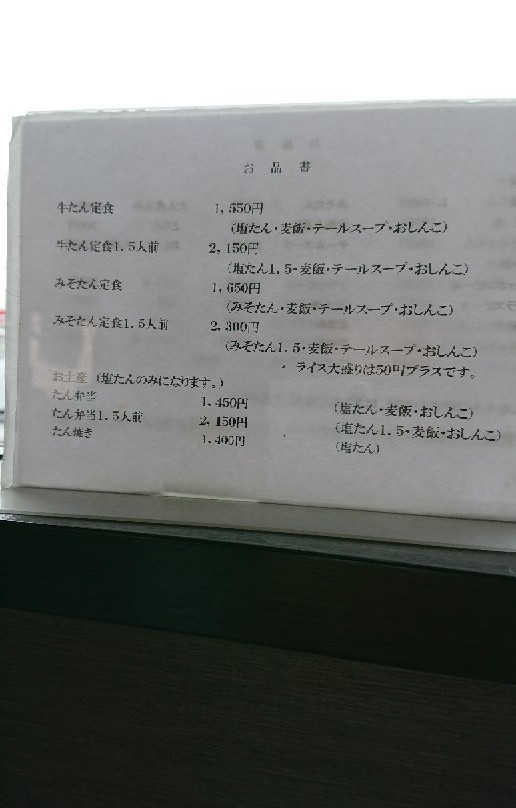 お品書
牛たん定食 1,550円
(塩たん・麦飯・テールスープ・おしんこ)
牛たん定食1.5人前 2,150円
(塩たん1.5・麦飯・テールスープ・おしんこ)
みそたん定食 1,650円
(みそたん・麦飯・テールスープ・おしんこ)
みそたん定食1.5人前 2,300円
(みそたん1.5・麦飯・テールスープ・おしんこ)
・ライス大盛りは50円プラスです。
お土産(塩たんのみになります。)
たん弁当 1,450円 (塩たん・麦飯・おしんこ)
たん弁当1.5人前 2,150円 (塩たん1.5・麦飯・おしんこ)
たん焼き 1,400円 (塩たん)